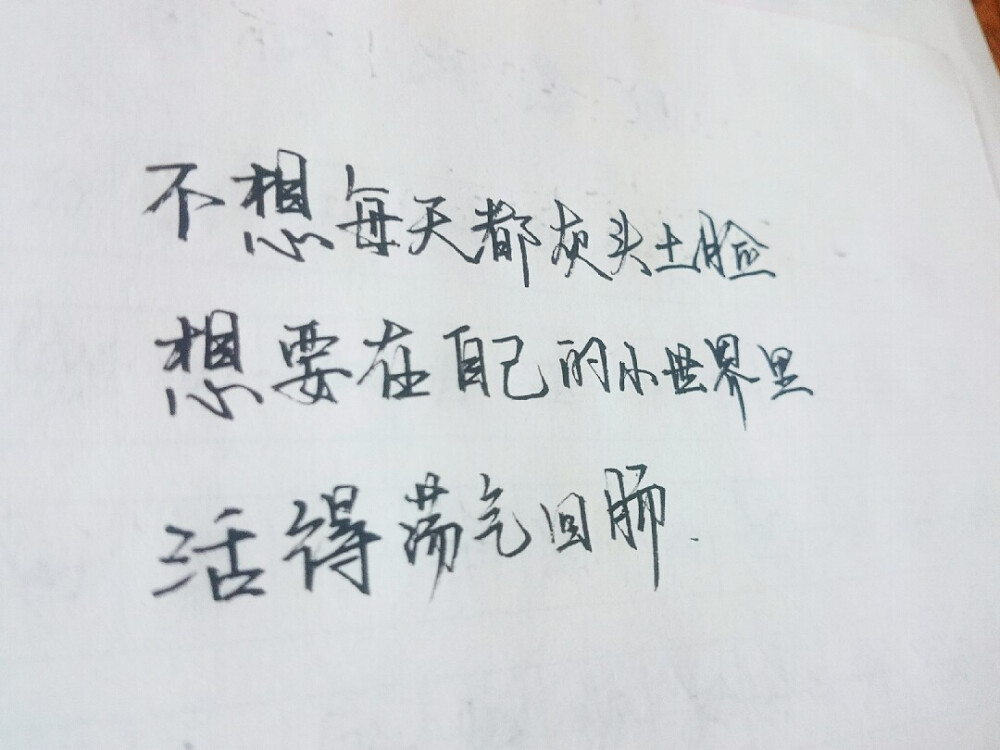 不想每天都灰头土脸
想要在自己的小世界里
活得荡气回肠.